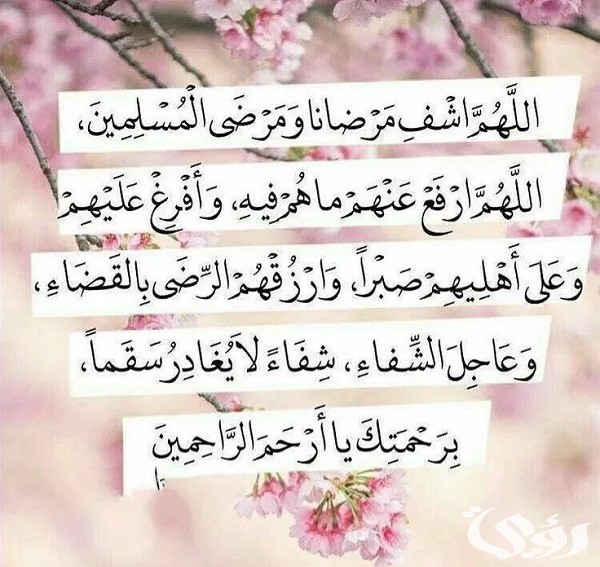 اللَّهُمَّ اشْفِ مَرْضانا وَمَرْضَى الْمُسْلِمِينَ،
اللَّهُمَّ ارْفَعْ عَنْهَمْ ما هُمْ فِيهِ، وَأَفْرِغْ عَلَيْهِمْ
وَعَلَى أَهْلِيهِمْ صَبْراً، وَارْزُقْهُمْ الرِّضَى بِالقَضَاءِ،
وَعَاجِلَ الشِّفاءِ، شِفَاءً لاَ يُغَادِرُ سَقَماً،
بِرَحْمَتِكَ يا أَرْحَمَ الرَّاحِمِينَ
رؤية